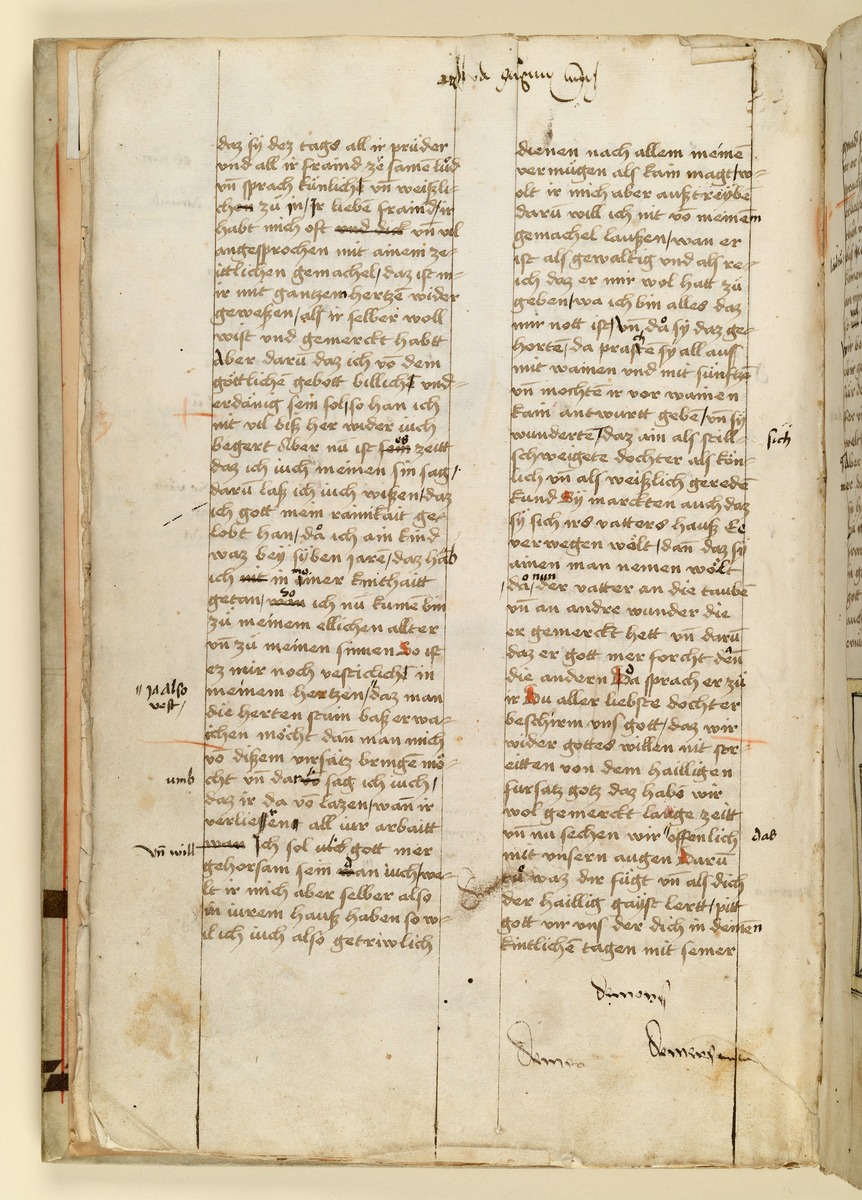 daz sÿ dez tags all ir prüder
vnd all ir fraind ze samē lůd
vn̄ sprach künlich vn̄ weißli-
chen zü in/ Ir lieben fraind/ ir
habt mich oft vnd dick vn̄ vil
angesprochen mit ainem ze-
itlichen gemachel/ daz ist m-
ir mit gantzem hertzē wider
geweßen/ als ir selber woll
wist vnd gemerckt habtt
Aber darū daz ich vō dem
göttlichen gebott billich vnd-
erdänig sein sol/ so han ich
nit vil biß her wider iuch
begert Aber nū ist es zeitt
daz ich iuch meinen sin sag/
darū laß ich iuch wißen/ daz
ich gott mein rainikait ge-
lobt han/ då ich ain kind
waz beÿ sÿben jarē/ daz hab
ich nit in meiner kinthaitt
getan/ so ich nū kumē bin
zü meinem ellichen allter
vn̄ zü meinen sinnen So ist
ez mir noch vesticlich in
ja also
vest/
meinem hertzen/ daz man
die herten stain baß erwai-
chen möcht dan man mich
vō dißem virsatz bringē mö-
umb
cht vn̄ darū sag ich iuch/
daz ir da vō lazen/ wan̄ ir
verliessent all iur arbaitt
vn̄ will
wan Ich sol vil gott mer
gehorsam sein dan iuch/ we-
lt ir mich aber selber also
in iurem hauß haben so w-
il ich iuch also getriwlich
dienen nach allem meinē
vermügen als kain magt/ w-
olt ir mich aber außtreÿbē
darū will ich nit vō meinem
gemachel laußen/ wan er
ist als gewaltig vnd als re-
ich daz er mir wol hatt zü
geben/ wa ich bin alles daz
mir nott ist/ Vn̄ då sÿ daz ge-
hortē/ da prastē sÿ all auff
mit wainen vnd mit süntzē
vn̄ mochte ir vor wainen
kain antwurtt gebē/ vn̄ sÿ
sich
wundertē/ daz ain als still-
schweigete dochter als kön-
lich vn̄ als weißlich geredē
kund Sÿ marckten auch daz
sÿ sich irs vatters hauß Ee
verwegen wölt/ dan̄ daz sÿ
ainen man nemen wölt
då nun der vatter an die taubē
vn̄ an andre wunder die
er gemerckt hett vn̄ darū
daz er gott mer forcht den̄
die andern Då sprach er zü
ir Du aller liebste dochter
beschirm vns gott/ daz wir
wider gottes willen nit str-
eitten von dem hailligen
fürsatz gotz daz habē wir
wol gemerckt lange zeitt
das
vn̄ nu sechen wir offenlich
mit vnsern augen Darū
tů waz dir fügt vn̄ als dich
der haillig gaÿst lertt/ pitt
gott vir vns der dich in deinen
kintlichē tagen mit seiner